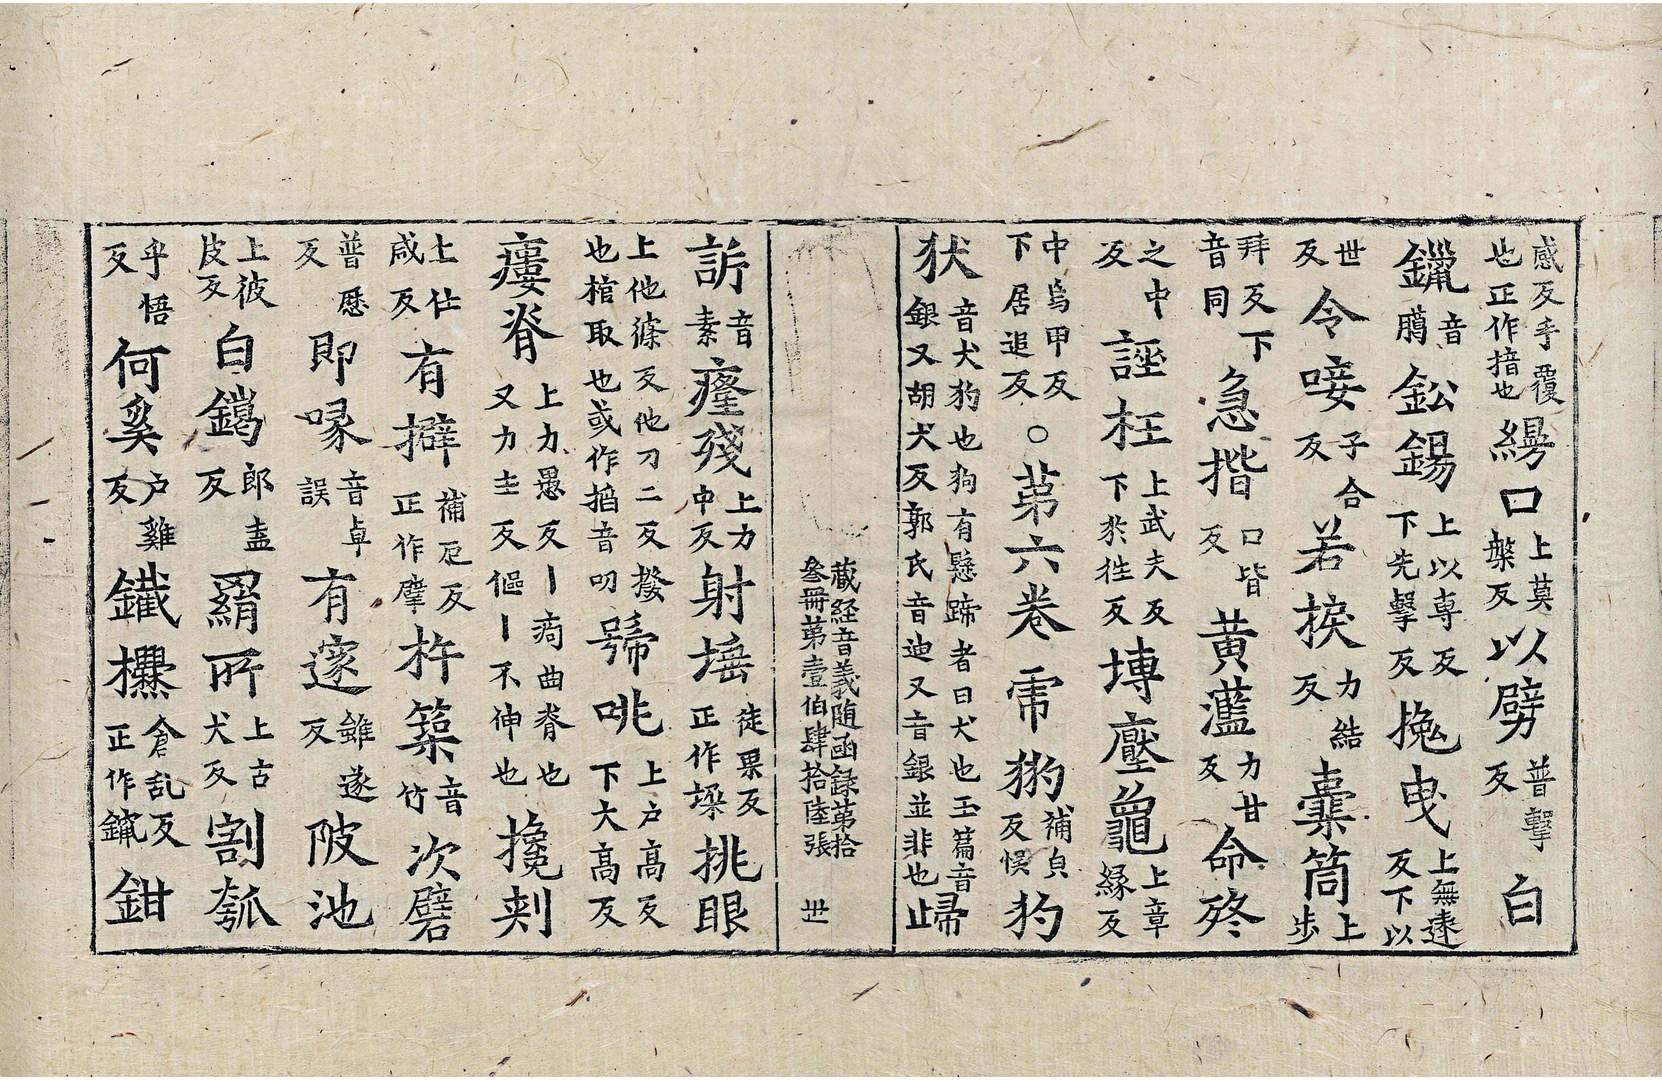 感反手覆也正作揞也縵口上莫槃反以劈普擊反白
鑞音臈鈆錫上以専反下先擊反㨪曳上無遠反下以
世反令唼子合反若捩力結反橐筒上步
拜反下音同急揩口皆反黃蘫力甘反命終
之中反誣枉上武夫反下於往反塼壓龜上章緣反
中烏甲反下居追反○第六卷虎犳補皃反悮犳
狄音犬犳也狗有懸蹄者曰犬也玉篇音銀又胡犬反郭氏音迪又音銀並非也歸
藏經音義随函録第拾叄冊第壹伯肆拾陸張 丗
訴音素癃殘上力中反射堶徒果反正作垜挑眼
上他篠反他刀二反撥也棺取也或作搯音叨號咷上户高反下大高反
瘻脊上力愚反丨痀曲脊也又力主反傴丨不伸也攙刾
上仕咸反有擗補厄反正作擘杵築音竹次礕
普歷反即喙音卓誤有邃雖遂反陂池
上彼皮反白鑞郎盍反羂所上古犬反割瓠
乎悟反何奚户雞反鐵欑倉乱反正作鑹鉗